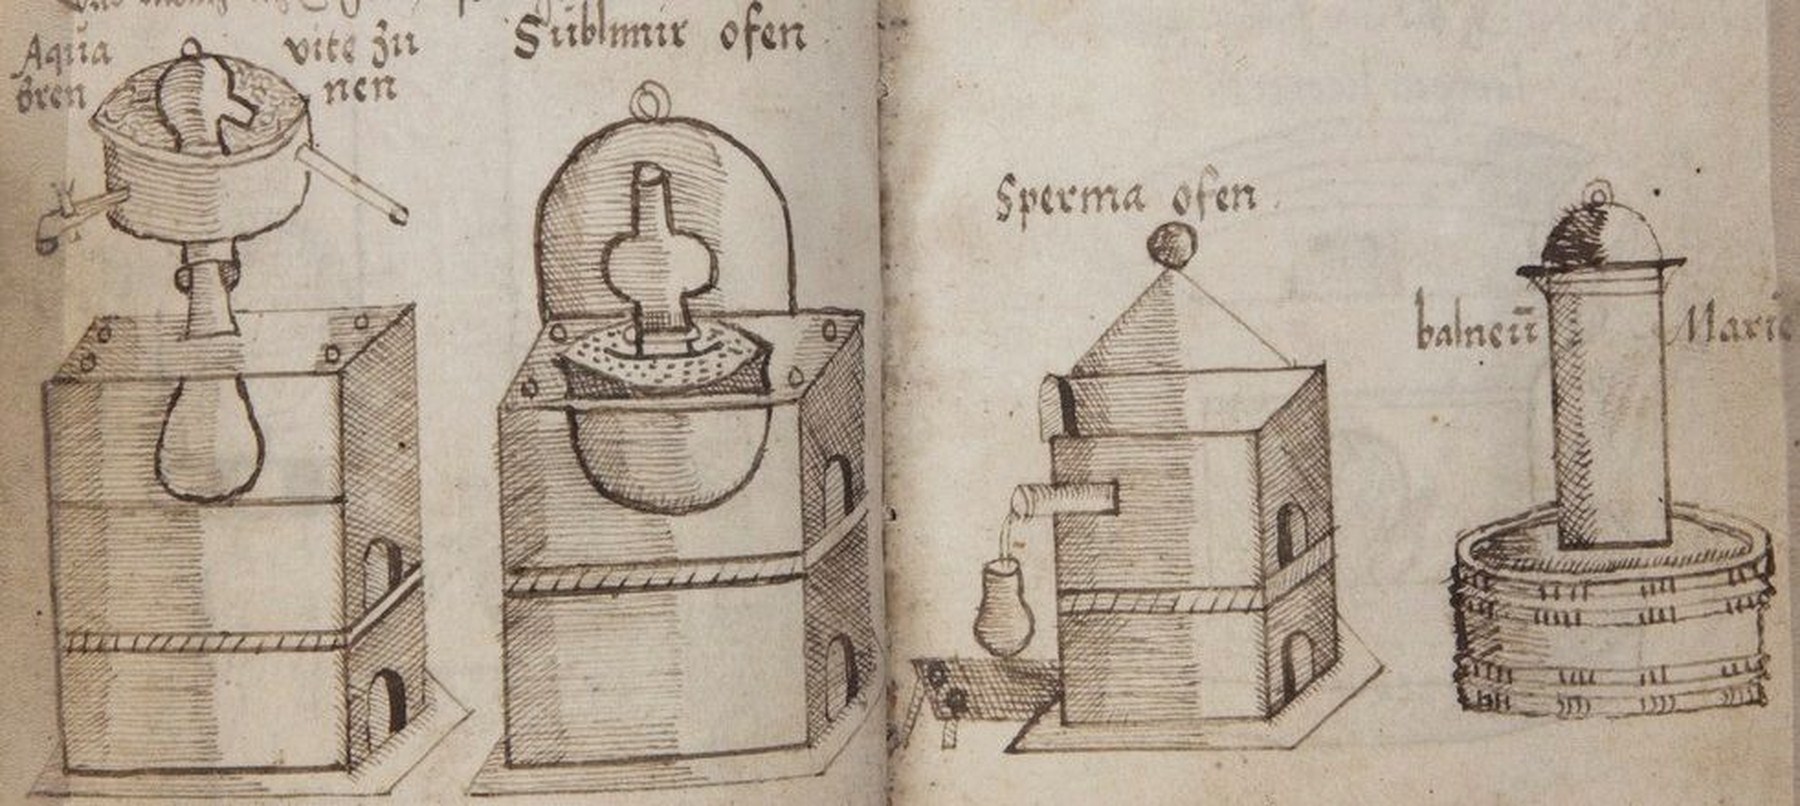 Aqua vite zu
bren nen
Sublimir ofen
Sperma ofen
balneū Marie